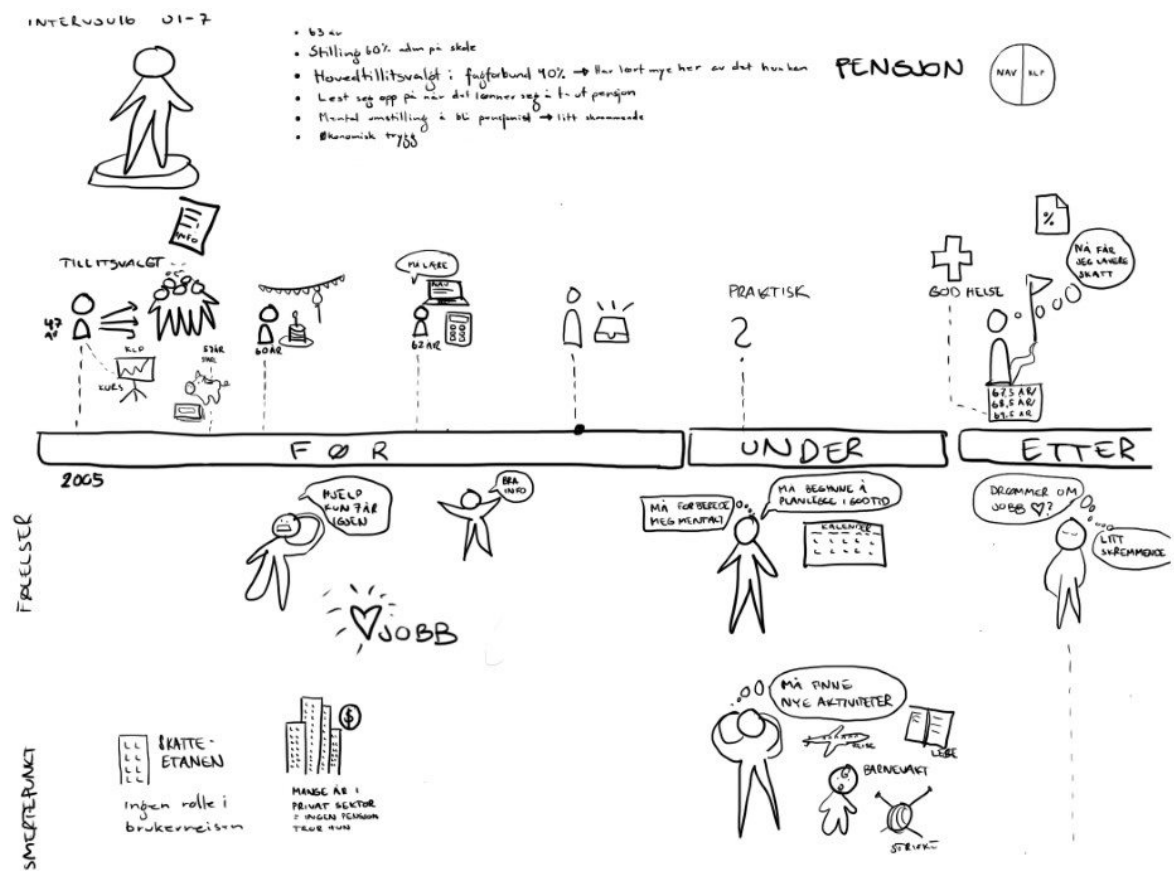 INTERVJU16 01-7
• 63 år
• Stilling 60% adm på skole
• Hovedtillitsvalgt i fagforbund 40% → Har lært mye her av det hun kan
• Lest seg opp på når det lønner seg å ta ut pensjon
• Mental omstilling å bli pensjonist → litt skremmende
• Økonomisk trygg
PENSJON
NAV KLP
INFO
TILLITSVALGT
47
ÅR
KLP
KURS
57 ÅR
SPAR
60 ÅR
MÅ LÆRE
NAV
62 ÅR
PRAKTISK
?
GOD HELSE
%
NÅ FÅR
JEG LAVERE
SKATT
67,5 ÅR/
68,5 ÅR/
69,5 ÅR
FØR
UNDER
ETTER
2005
FØLELSER
HJELP
KUN 7 ÅR
IGJEN
BRA
INFO
JOBB
MÅ FORBEREDE
MEG MENTALT
MÅ BEGYNNE Å
PLANLEGGE I GOD TID
KALENDER
DRØMMER OM
JOBB ♡?
LITT
SKREMMENDE
SMERTEPUNKT
SKATTE-
ETANEN
Ingen rolle i
brukerreisen
$
MANGE ÅR I
PRIVAT SEKTOR
= INGEN PENSJON
TROR HUN
MÅ FINNE
NYE AKTIVITETER
REISE
LESE
BARNEVAKT
STRIKKE